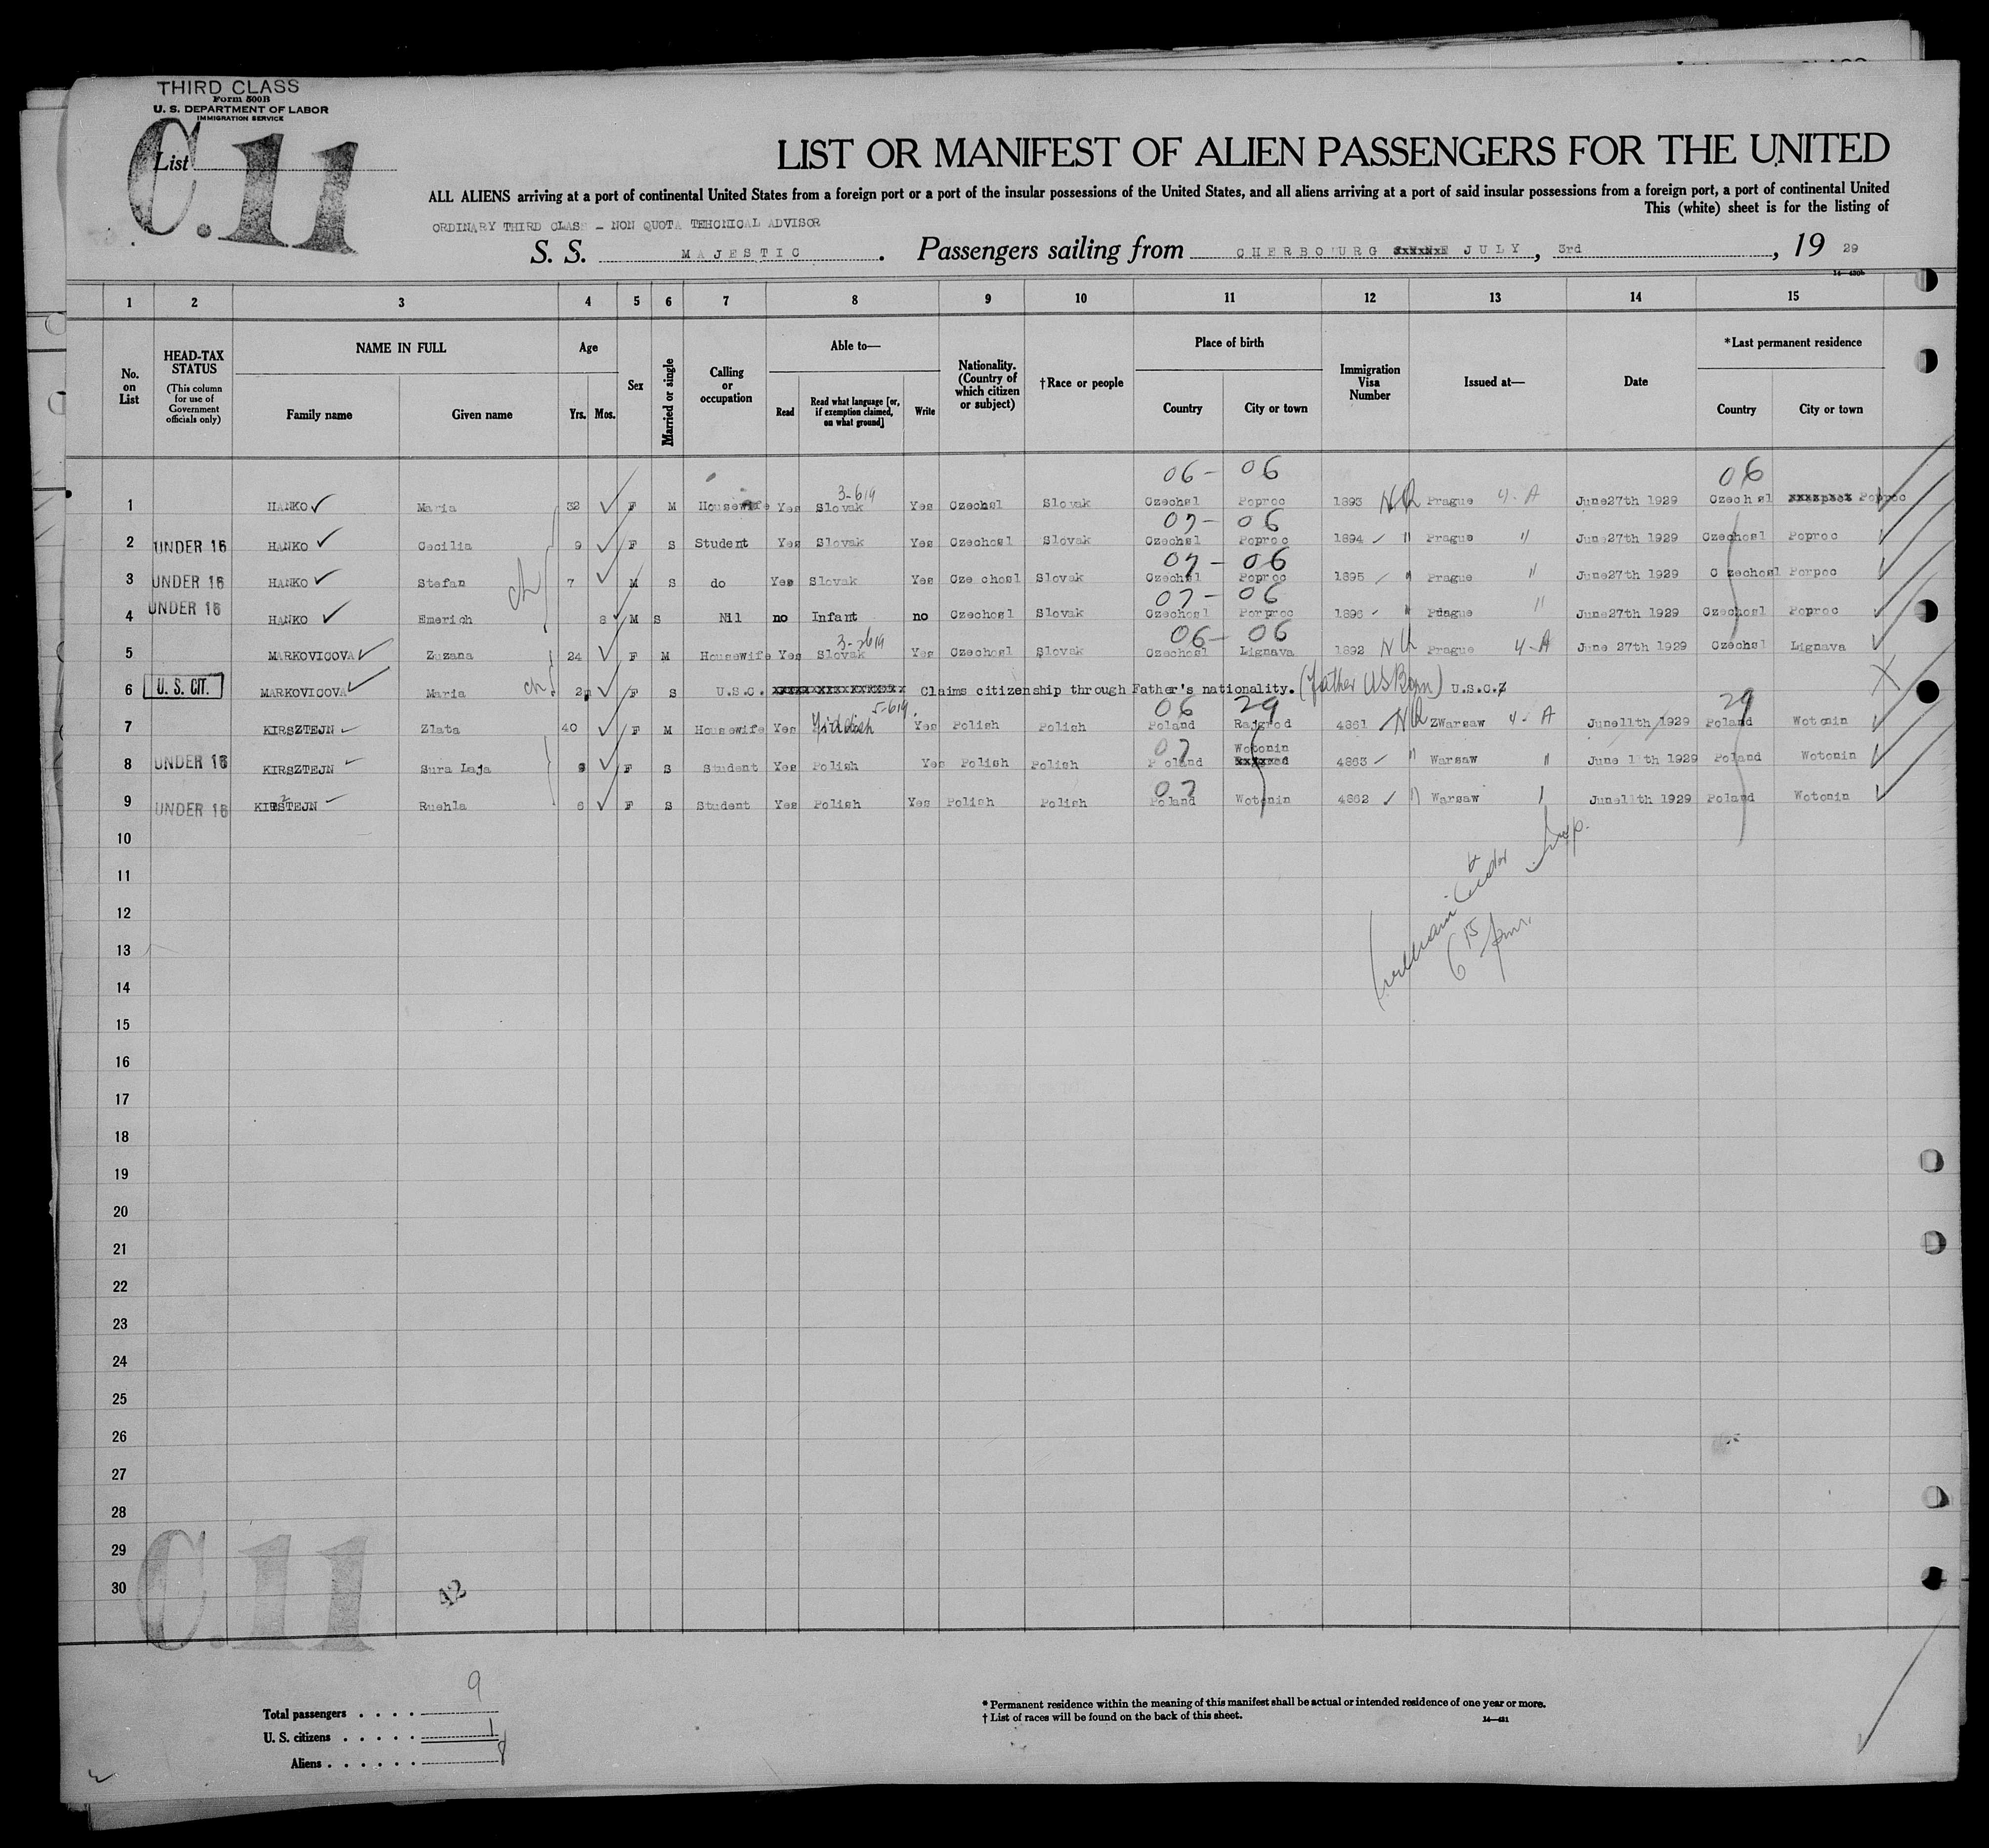 THIRD CLASS
Form 500B
U. S. DEPARTMENT OF LABOR
IMMIGRATION SERVICE
List
C.11
LIST OR MANIFEST OF ALIEN PASSENGERS FOR THE UNITED
ALL ALIENS arriving at a port of continental United States from a foreign port or a port of the insular possessions of the United States, and all aliens arriving at a port of said insular possessions from a foreign port, a port of continental United
This (white) sheet is for the listing of
ORDINARY THIRD CLASS - NON QUOTA TEHCNICAL ADVISOR
S. S. MAJESTIC. Passengers sailing from CHERBOURG JULY, 3rd, 19 29
14—430b
1 2 3 4 5 6 7 8 9 10 11 12 13 14 15
No. on List
HEAD-TAX STATUS (This column for use of Government officials only)
NAME IN FULL
Family name
Given name
Age
Yrs. Mos.
Sex
Married or single
Calling or occupation
Able to—
Read
Read what language [or, if exemption claimed, on what ground]
Write
Nationality. (Country of which citizen or subject)
†Race or people
Place of birth
Country
City or town
Immigration Visa Number
Issued at—
Date
*Last permanent residence
Country
City or town
06- 06 06
3-619
1 HANKO Maria 32 F M Housewife Yes Slovak Yes Czechsl Slovak Czechsl Poproc 1893 NQ Prague 4-A June27th 1929 Czechsl Poproc
07- 06
2 UNDER 16 HANKO Cecilia 9 F S Student Yes Slovak Yes Czechosl Slovak Czechsl Poproc 1894 " Prague " June27th 1929 Czechosl Poproc
07- 06
3 UNDER 16 HANKO Stefan 7 M S do Yes Slovak Yes Cze chosl Slovak Czechsl Poproc 1895 " Prague " June27th 1929 C zechosl Porpoc
07- 06
4 UNDER 16 HANKO Emerich 8 M S Nil no Infant no Czechosl Slovak Czechosl Porproc 1896 " Prague " June27th 1929 Czechosl Poproc
ch
06- 06
5 MARKOVICOVA Zuzana 24 F M Housewife Yes Slovak Yes Czechosl Slovak Czechosl Lignava 1892 NQ Prague 4-A June 27th 1929 Czechsl Lignava
ch
6 U. S. CIT. MARKOVICOVA Maria 2 F S U.S.C. Claims citizenship through Father's nationality. (Father US Born) U.S.C.
5-619
06 29 29
7 KIRSZTEJN Zlata 40 F M Housewife Yes Yiddish Yes Polish Polish Poland Rajgrod 4861 NQ ZWarsaw 4-A June11th 1929 Poland Wotonin
07 Wotonin
8 UNDER 16 KIRSZTEJN Sura Laja 9 F S Student Yes Polish Yes Polish Polish Poland 4863 " Warsaw " June 11th 1929 Poland Wotonin
07
9 UNDER 16 KIRSTEJN Ruchla 6 F S Student Yes Polish Yes Polish Polish Poland Wotonin 4862 " Warsaw " June11th 1929 Poland Wotonin
10
11
12
13
14
15
16
17
18
19
20
21
22
23
24
25
26
27
28
29
30
Insp.
6 15 pm.
C.11
42
Total passengers . . . . 9
U. S. citizens . . . . . 1
Aliens . . . . . . 8
* Permanent residence within the meaning of this manifest shall be actual or intended residence of one year or more.
† List of races will be found on the back of this sheet.
14—431